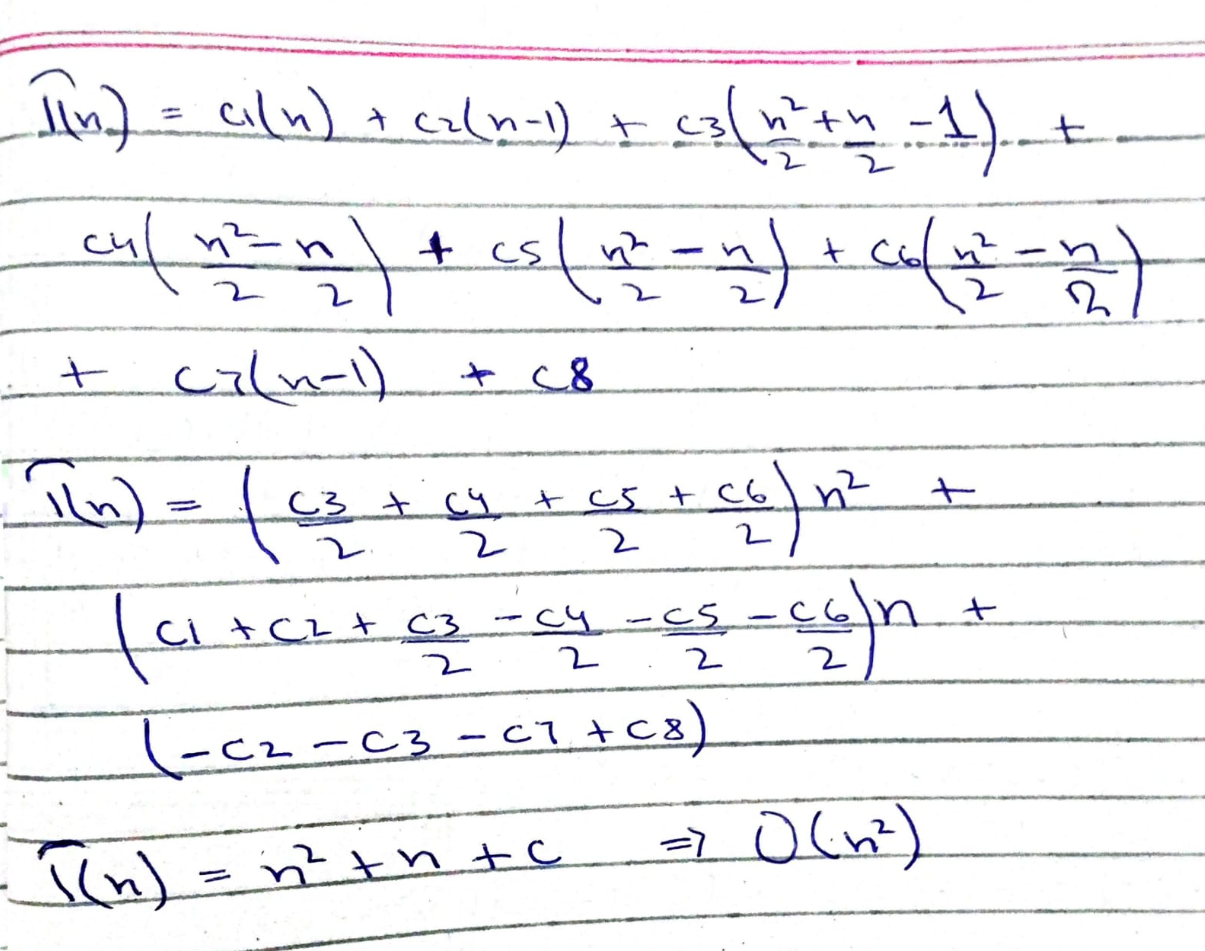 T(n) = c1(n) + c2(n-1) + c3(n²/2 + n/2 - 1) +
c4(n²/2 - n/2) + c5(n²/2 - n/2) + c6(n²/2 - n/2)
+ c7(n-1) + c8
T(n) = (c3/2 + c4/2 + c5/2 + c6/2) n² +
(c1 + c2 + c3/2 - c4/2 - c5/2 - c6/2)n +
(-c2 - c3 - c7 + c8)
T(n) = n² + n + c ⇒ O(n²)